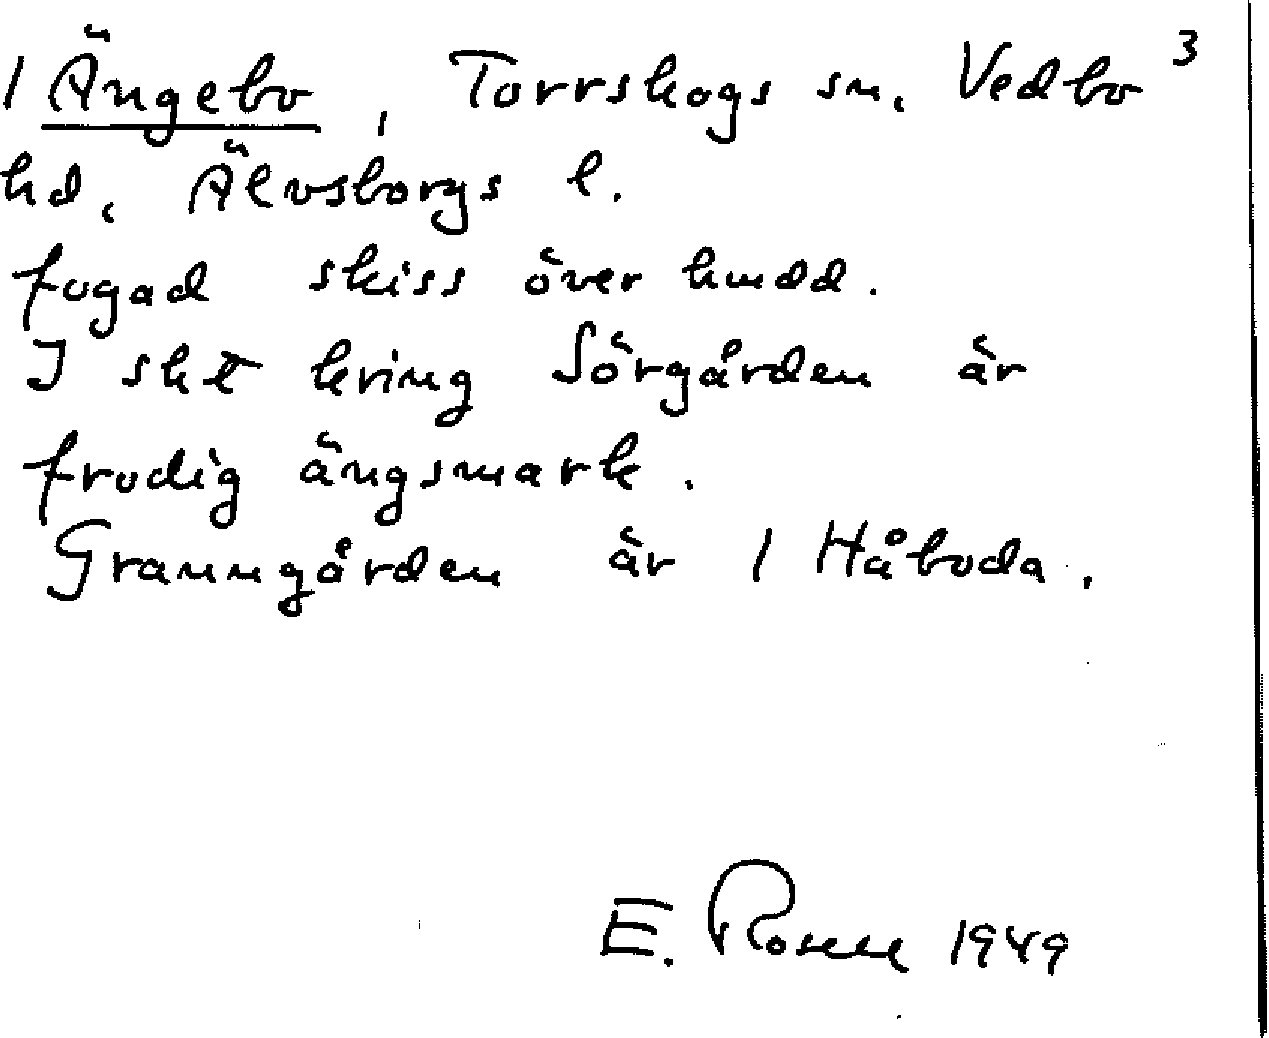 1 Ängebo, Torrskogs sn. Vedbo 3
hd, Älvsborgs l.
fogad skiss över hmdd.
I skt kring Sörgården är
frodig ängsmark.
Granngården är 1 Håboda.
E. Rosell 1949